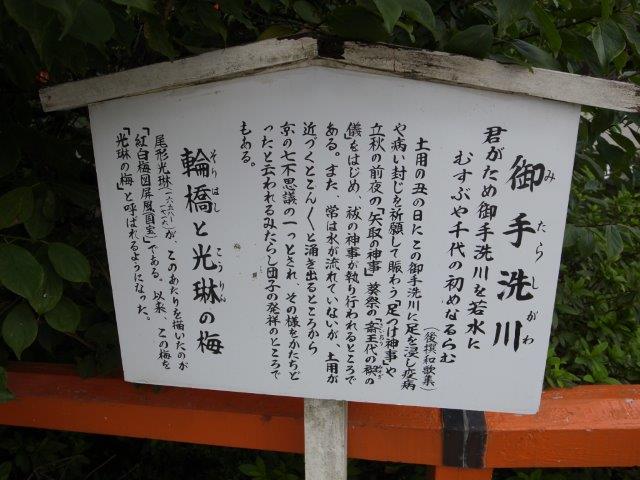 御手洗川
みたらしがわ
君がため御手洗川を若水に
むすぶや千代の初めなるらむ
(後撰和歌集)
土用の丑の日にこの御手洗川に足を浸し疫病
や病い封じを祈願して賑わう「足つけ神事」や
立秋の前夜の「矢取の神事」葵祭の「斎王代の禊の
儀」をはじめ、祓の神事が執り行われるところで
ある。また、常は水が流れていないが、土用が
近づくとこんこんと涌き出るところから
京の七不思議の一つとされ、その様をかたちど
ったと云われるみたらし団子の発祥のところで
もある。
輪橋と光琳の梅
そりはし
こうりん
尾形光琳が、このあたりを描いたのが
「紅白梅図屏風(国宝)」である。以来、この梅を
「光琳の梅」と呼ばれるようになった。